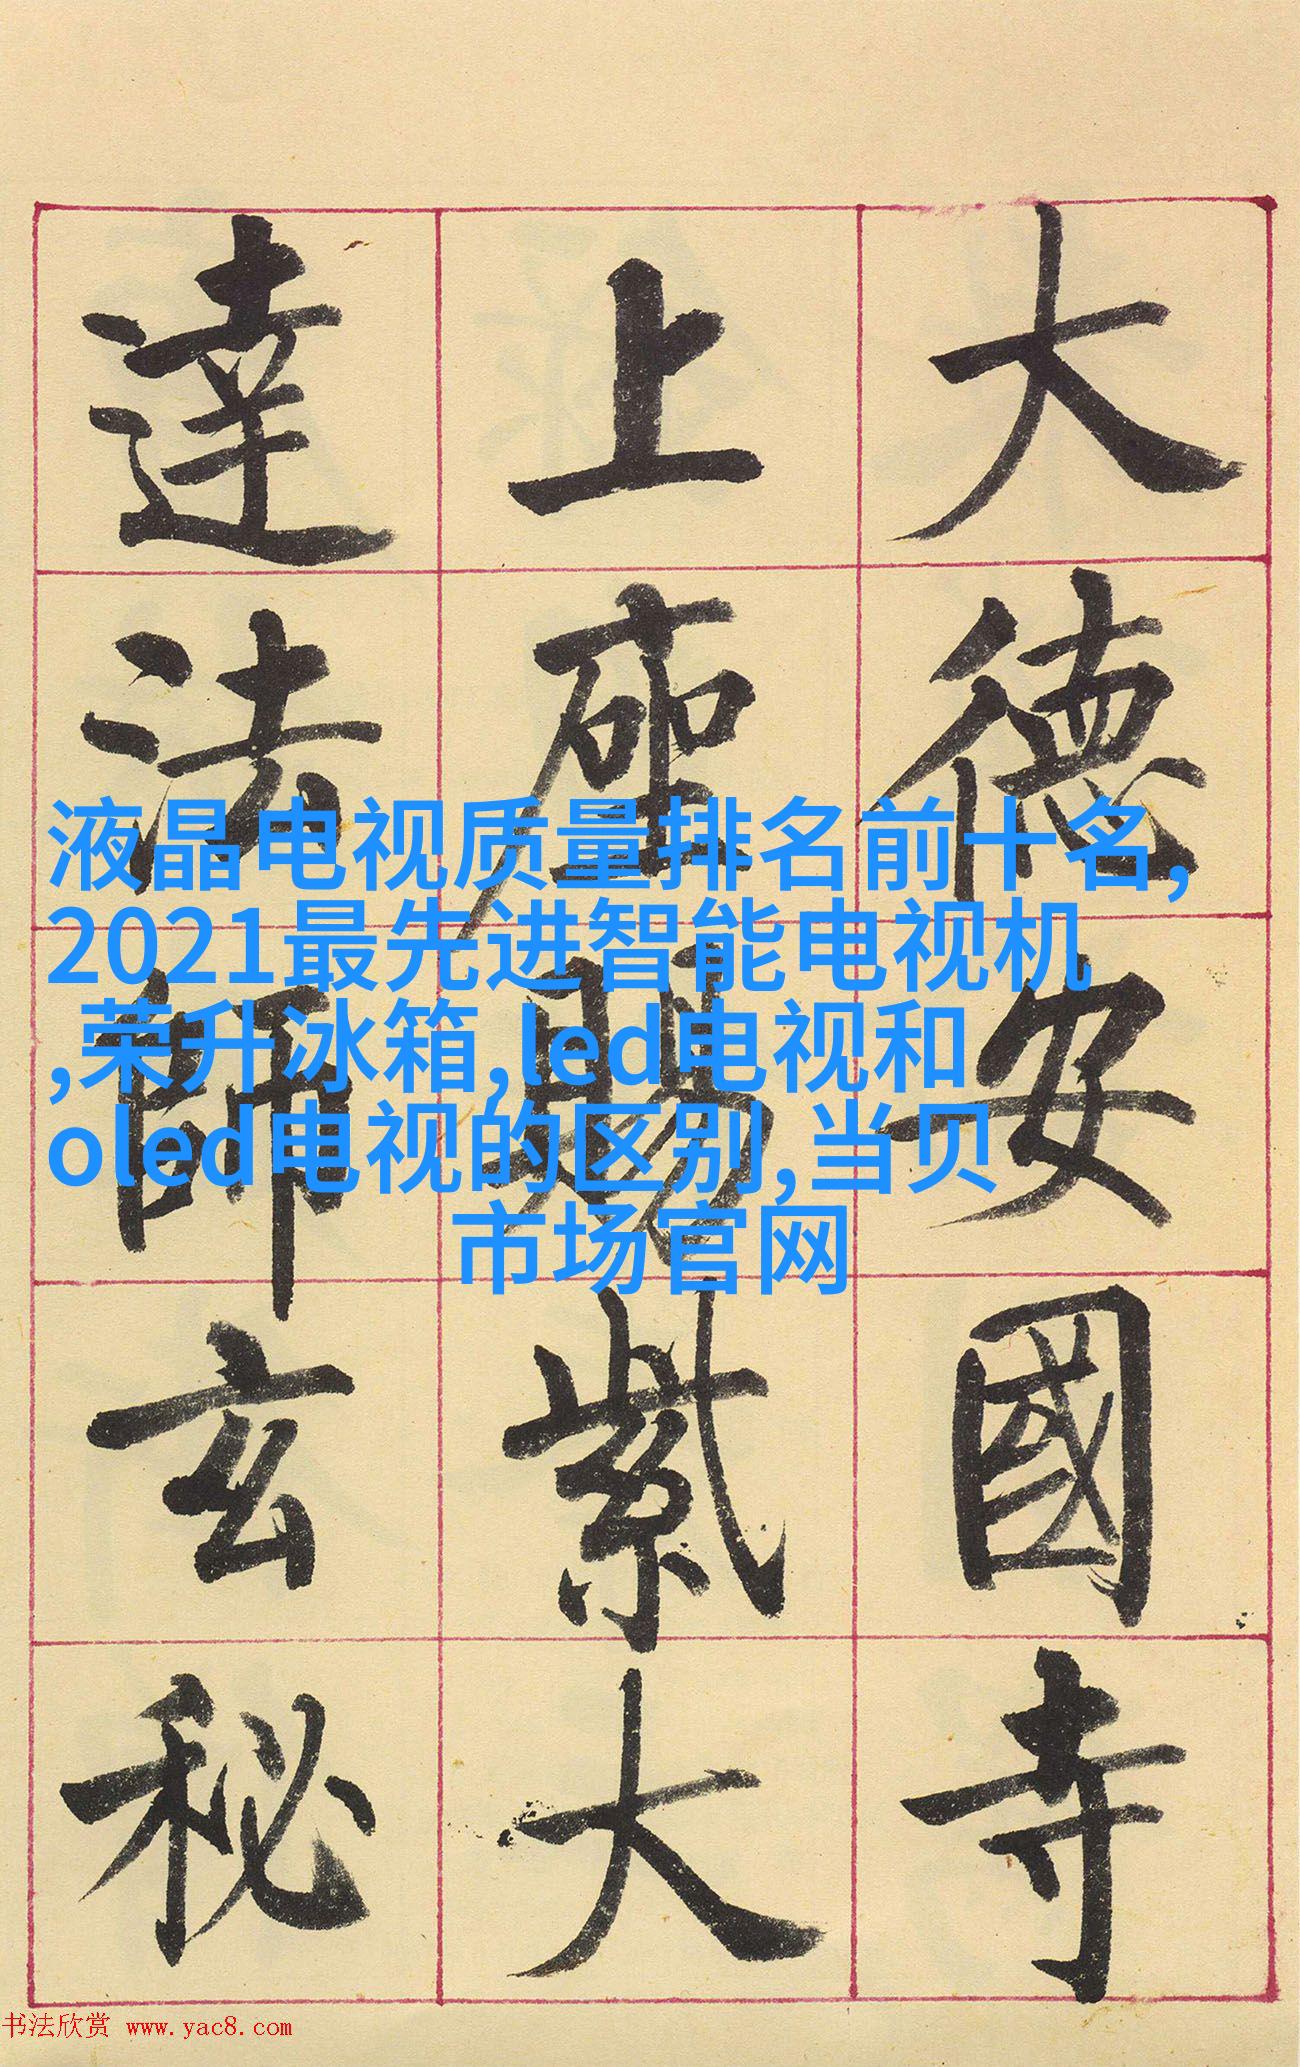 大德安國寺
上座賜紫大
達法師玄秘
液晶电视质量排名前十名,
2021最先进智能电视机
,荣升冰箱,led电视和
oled电视的区别,当贝
市场官网
书法欣赏 www.yac8.com